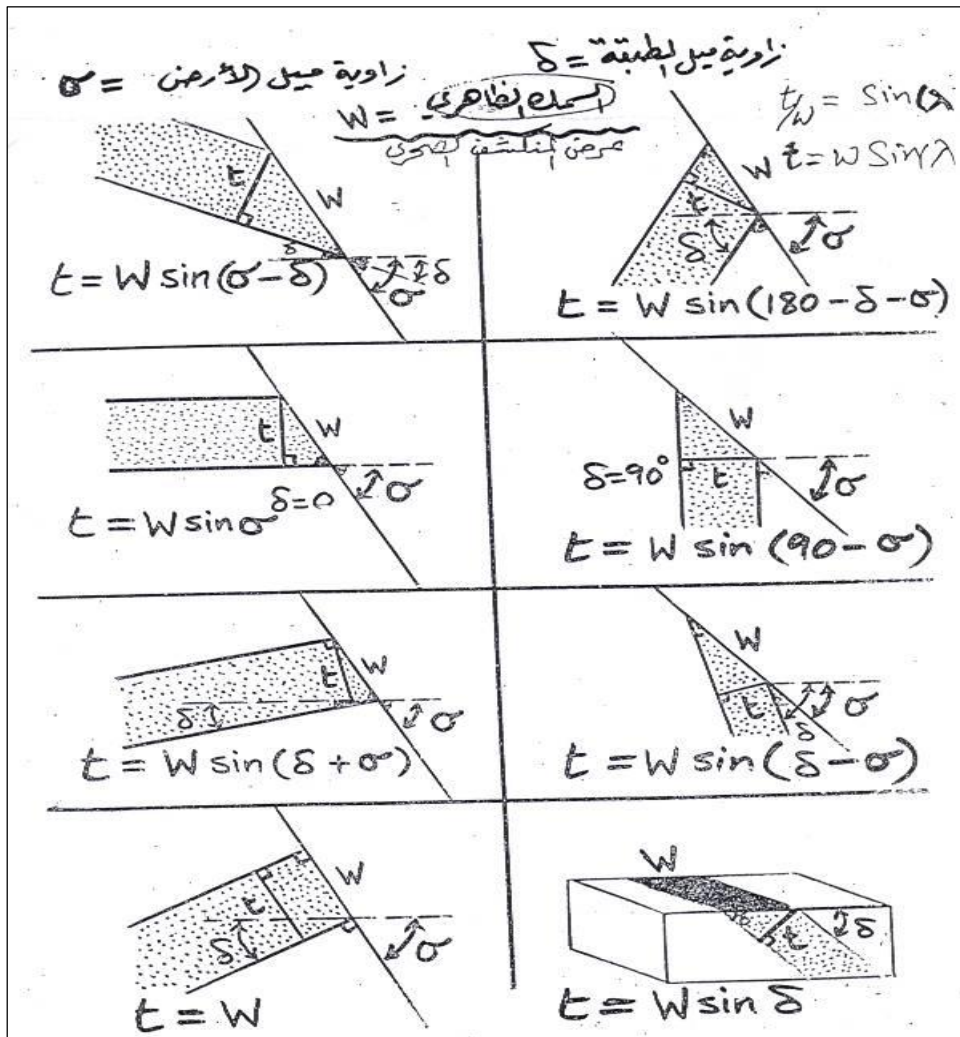 δ = زاوية ميل الطبقة
σ = زاوية ميل الأرض
W = السمك الظاهري
عرض المنكشف الصخري
t/w = sin(λ
t = w sin λ
t
W
δ
σ
δ
t = W sin(σ-δ)
W
t
δ
σ
t = W sin(180-δ-σ)
t
W
σ
δ=0
t = W sin σ
W
δ=90°
t
σ
t = W sin (90-σ)
t
W
δ
σ
t = W sin(δ+σ)
W
t
σ
δ
t = W sin(δ-σ)
W
t
δ
σ
t = W
W
t
δ
t = W sin δ